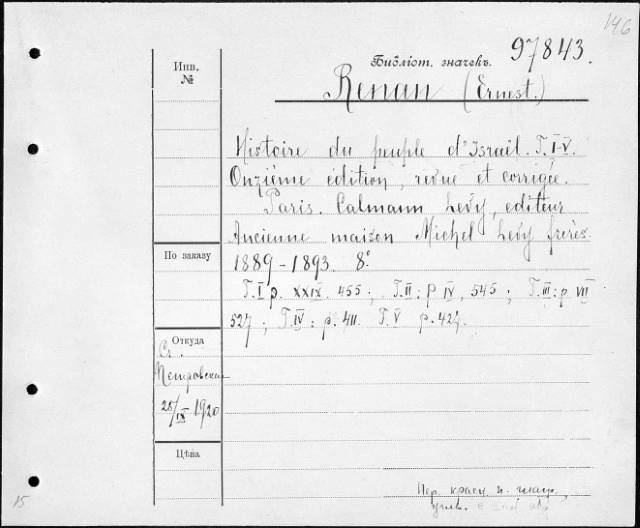 146
Инв.
№
Библіот. значекъ. 97843.
Renan (Ernest.)
Histoire du peuple d'Israël. T. I-V.
Onzième édition, revue et corrigée.
Paris. Calmann Levy, editeur
Ancienne maison Michel Levy frères.
По заказу
1889-1893. 8°
T. I p. XXIX. 455; T. II: p IV, 545; T. III: p VII
527; T. IV: p. 411. T. V p. 427.
Откуда
Ст.
Петровская
28/IX 1920
Цѣна
Пер. красн. к.
15